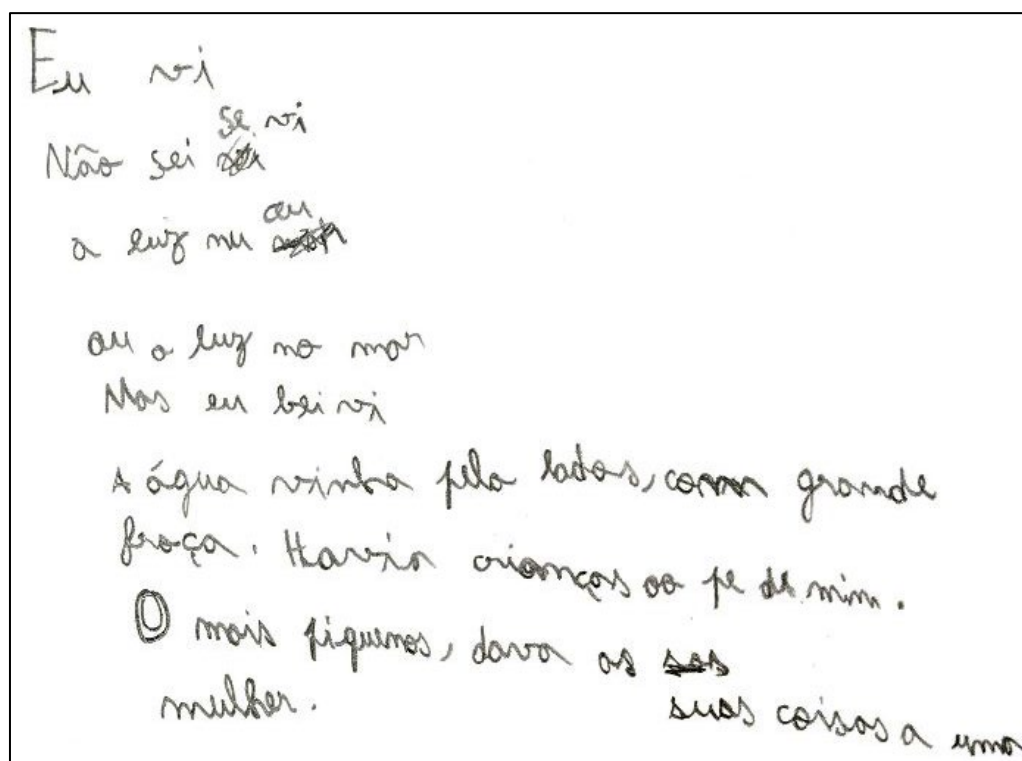 Eu vi
Não sei se vi
a luz nu au
au a luz no mar
Mas eu bei vi
A água vinha pela lados, com grande
froça. Havia crianças ao pe de mim.
O mais piquenos, dava as
suas coisas a uma
mulher.